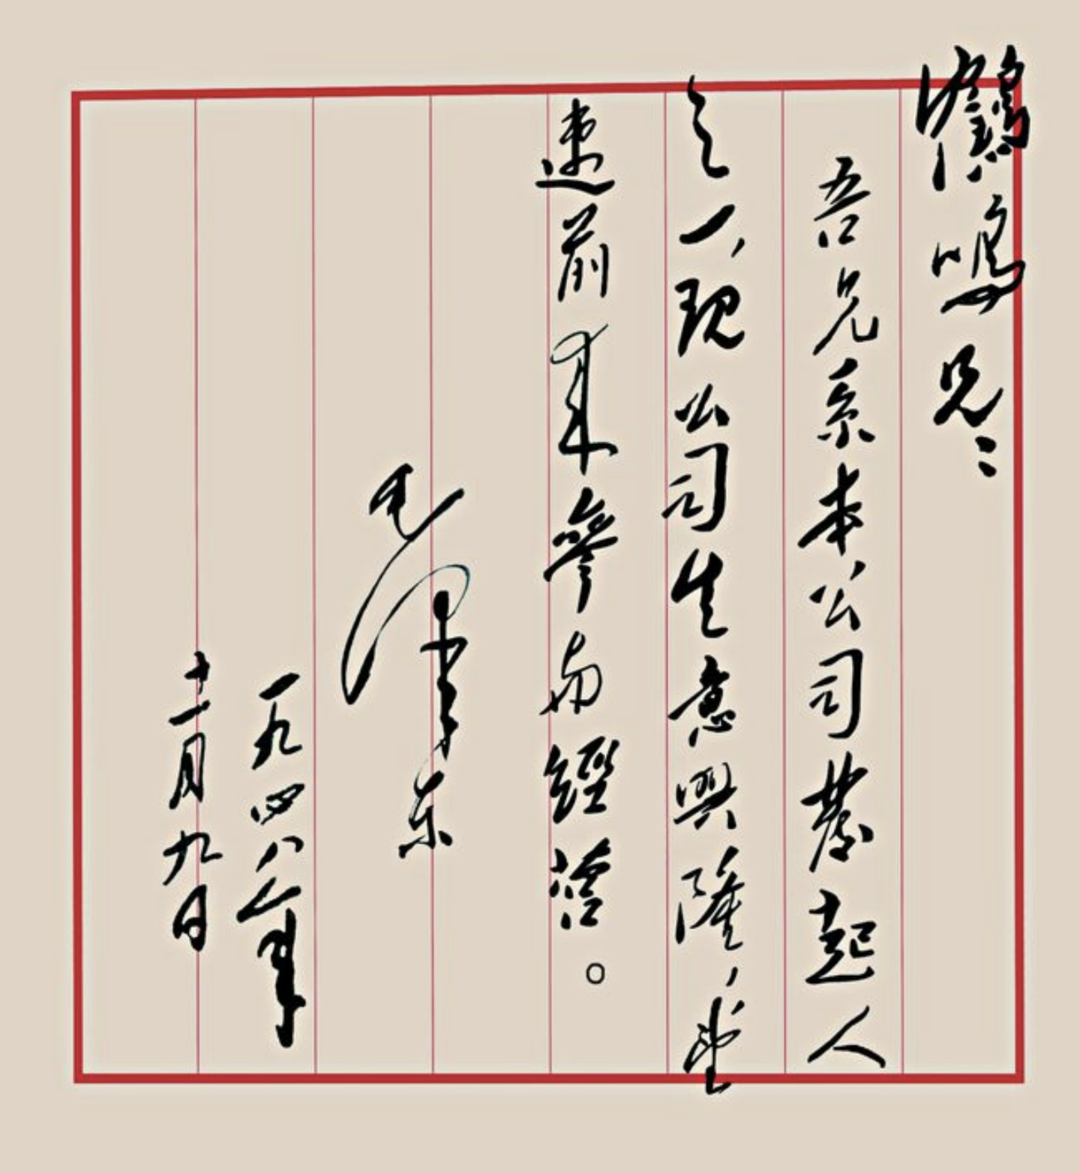 鶴鳴兄：
吾兄系本公司發起人
之一，現公司生意興隆，望
速前來參與經營。
毛澤东
一九四八年
十一月九日